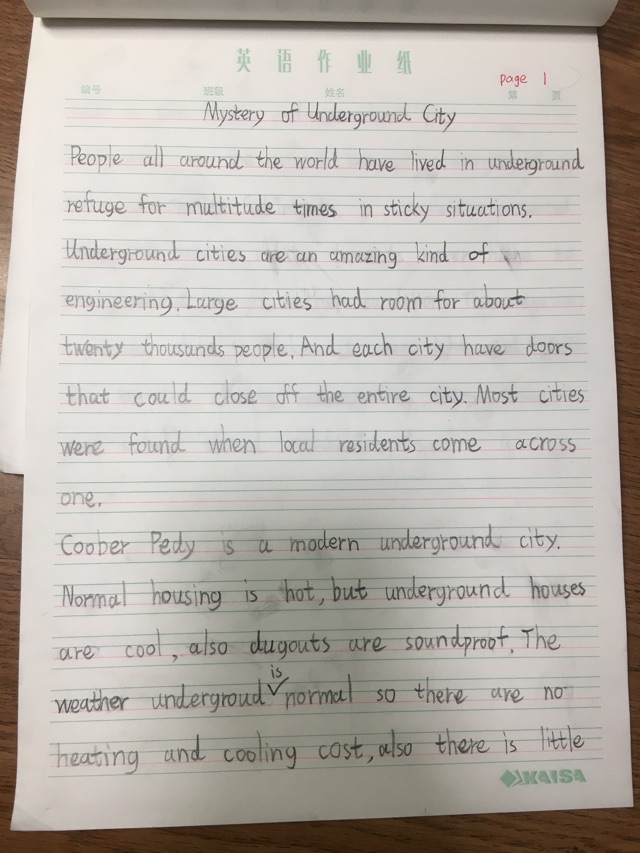 英语作业纸
page 1
编号 班级 姓名 第 页
Mystery of Underground City
People all around the world have lived in underground
refuge for multitude times in sticky situations.
Underground cities are an amazing kind of
engineering. Large cities had room for about
twenty thousands people. And each city have doors
that could close off the entire city. Most cities
were found when local residents come across
one.
Coober Pedy is a modern underground city.
Normal housing is hot, but underground houses
are cool, also dugouts are soundproof. The
is
weather undergroud normal so there are no
heating and cooling cost, also there is little
KAISA